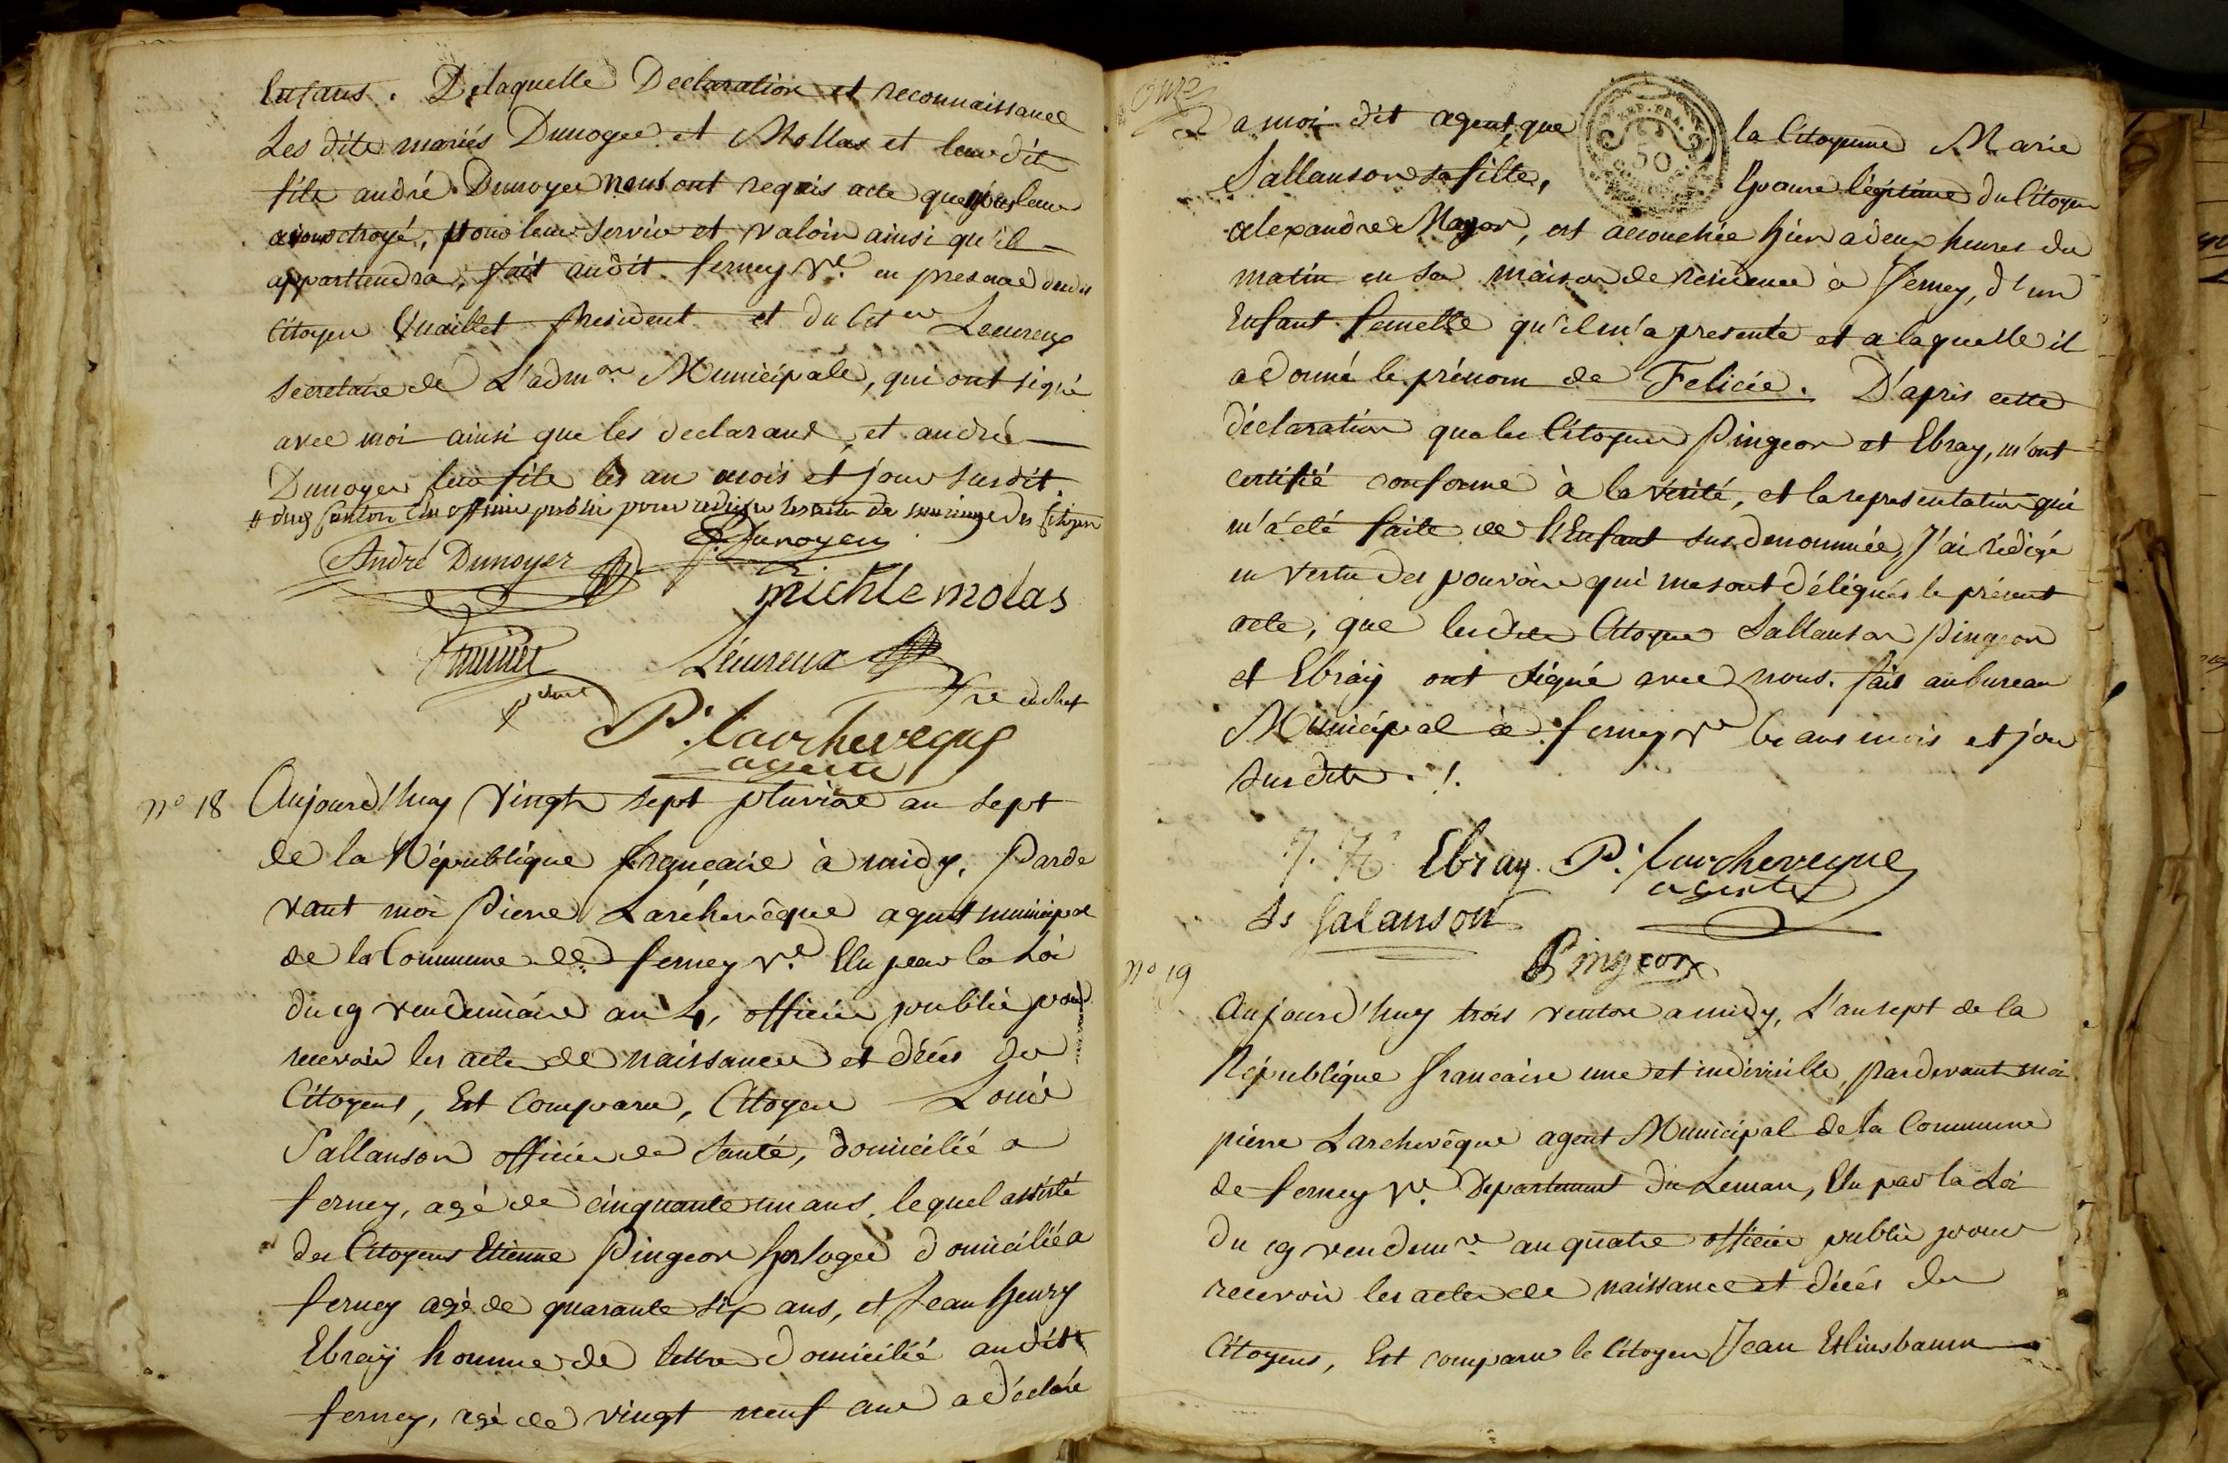 Enfans. Delaquelle Declaration et reconnaissance
Les dits mariés Dunoyer et Mollas et leur dit
fils andré Dunoyer nous ont requis acte que
avons octroyé, pour leur servir et valoir ainsi qu'il
appartiendra, fait audit ferney Vre. en presence
Citoyen president et du Citen Leureux
secretaire de L'admon. Municipale, qui ont signé
avec moi ainsi que les declarans, et andré
Dunoyer leur fils les an mois et jour susdit
officier public pour rediger les actes de mariage des Citoyens
André Dunoyer Dunoyer
michle molas
Leureux
sre en chef
P. Larcheveque
agent
no 18 Aujourd'huy Vingt sept pluviose an sept
de la République française à midy, Parde
vant moi Pierre Larchevêque agent municipal
de la Commune de ferney Vre. Elu par la Loi
du 19 vendemiaire an 4, officier public pour
recevoir les actes de naissance et décès des
Citoyens, Est comparu, Citoyen Louis
Sallanson officier de Santé, domicilié a
ferney, agé de cinquante un ans, lequel assisté
des Citoyens Etienne Pingeon horloger domicilié a
ferney agé de quarante six ans, et Jean henry
Ebray homme de lettre domicilié audit
ferney, agé de vingt neuf ans a déclaré
onze
REP. FRA.
50
a moi dit agent, que la Citoyenne Marie
Sallanson sa fille, Epouse légitime du Citoyen
alexandre Mayor, est accouchée hier a deux heures du
matin en sa maison de residence à ferney, d'un
Enfant femelle qu'il m'a presenté et a laquelle il
a donné le prénom de Felicie. D'après cette
déclaration que les Citoyens Pingeon et Ebray, m'ont
certifié conforme à la vérité, et la representation qui
m'a été faite de l'Enfant sus denommée, J'ai rédigé
en vertu des pouvoirs qui me sont délégués le présent
acte, que lesdits Citoyens Sallanson Pingeon
et Ebray ont signé avec nous. fait au bureau
Municipal à ferney Vre les ans mois et jour
susdits.
J. H. Ebray P. Larcheveque
agent
Ls Salanson
Pingeon
no 19
Aujourd'huy trois ventose a midy, L'an sept de la
République francaise une et indivisible, pardevant moi
pierre Larchevêque agent Municipal de la Commune
de ferney Vre. Departement du Leman, Elu par la Loi
du 19 vendemre an quatre officier public pour
recevoir les actes de naissance et décès des
Citoyens, Est comparu le Citoyen Jean